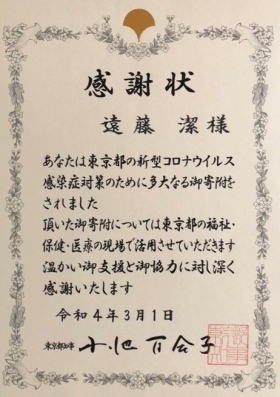 感謝状
遠藤 潔様
あなたは東京都の新型コロナウイルス
感染症対策のために多大なる御寄附を
されました
頂いた御寄附については東京都の福祉・
保健・医療の現場で活用させていただきます
温かい御支援と御協力に対し深く
感謝いたします
令和4年3月1日
東京都知事 小池百合子